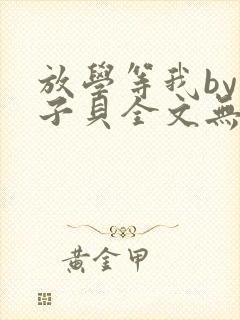 放學等我by
子貝全文無
黃金甲